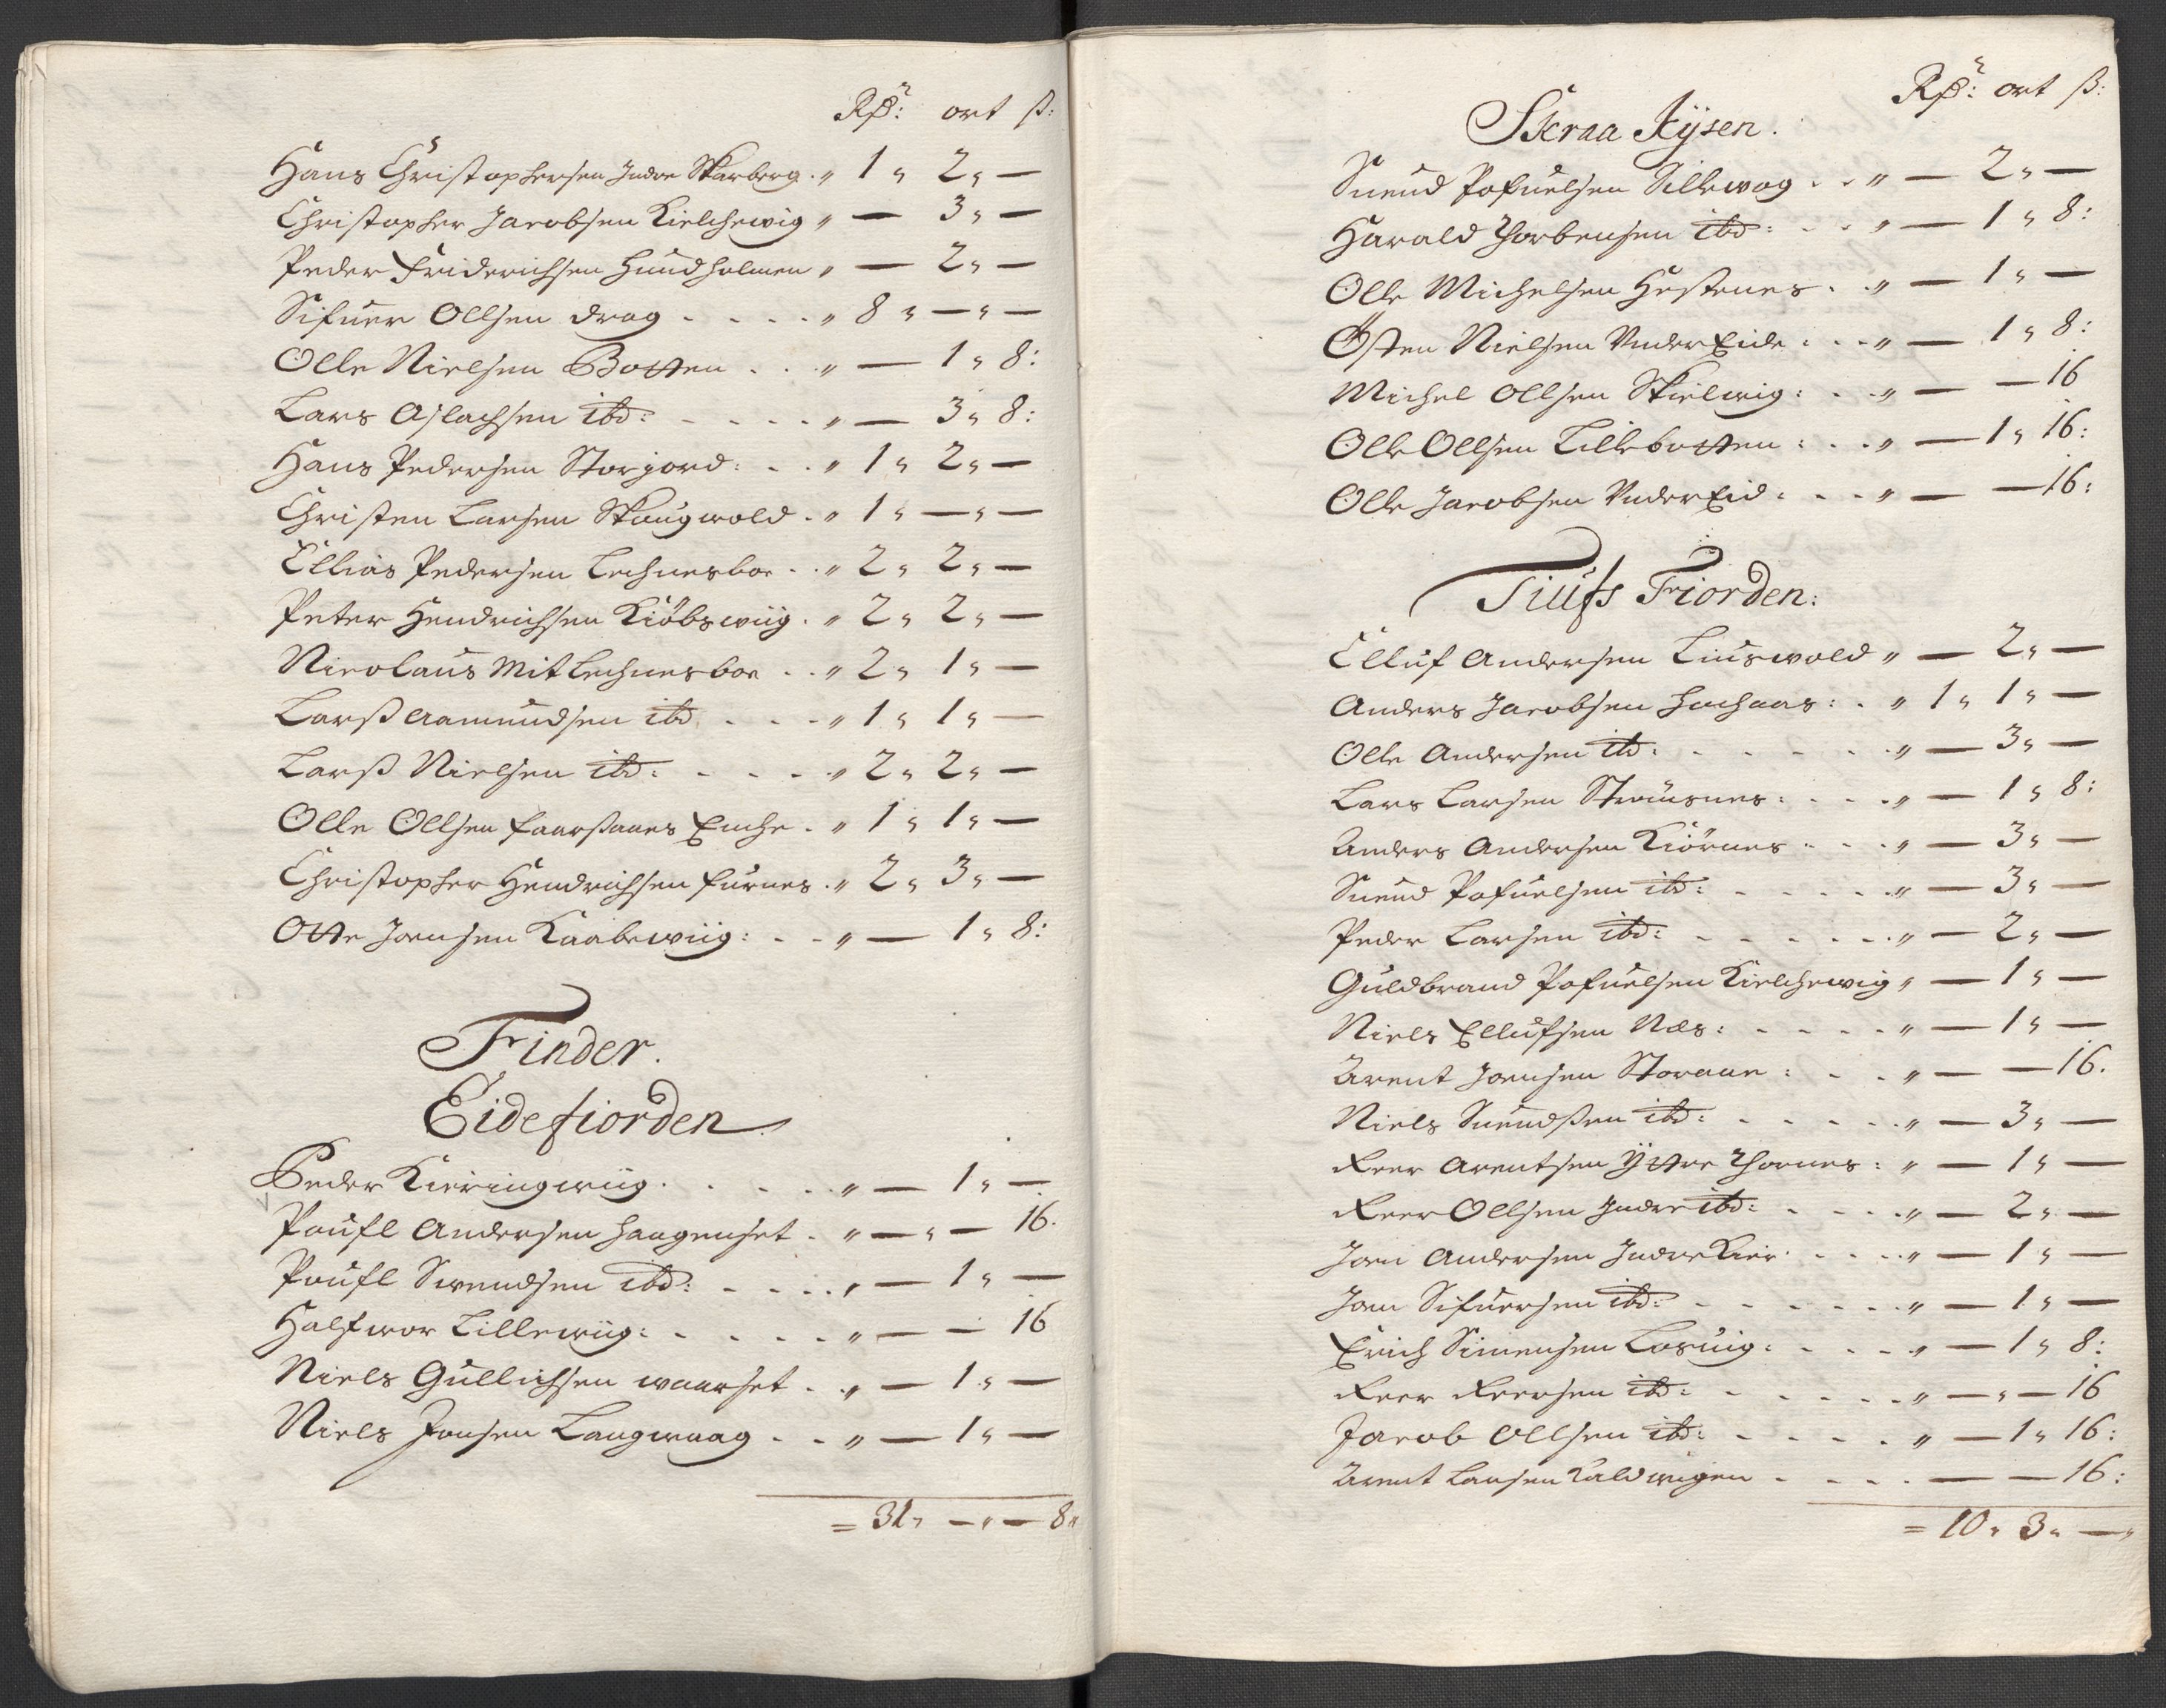 Rß: ort ß:
Hans Christophersen Indre Skarberg „ 1 „ 2 „ —
Christopher Jacobsen Kielchewig „ — 3 „ —
Peder Friderichsen Hundholmen „ — 2 „ —
Sifuer Ollsen Drag . . . . „ 8 „ — „ —
Olle Nielsen Botten . . „ — 1 „ 8:
Lars Aslachsen ibd: - - - - „ — 3 „ 8:
Hans Pedersen Storjord: - . „ 1 „ 2 „ —
Christen Larsen Skougwold . „ 1 „ — „ —
Ellias Pedersen Lechnesboe . . „ 2 „ 2 „ —
Peter Hendrichsen Kiöbswiig . „ 2 „ 2 „ —
Nicolaus Mit Lechnesboe . . „ 2 „ 1 „ —
Larß Aamundsen ibd . - - - „ 1 „ 1 „ —
Larß Nielsen ibd: - - - - „ 2 „ 2 „ —
Olle Ollsen Eenche . „ 1 „ 1 „ —
Christopher Hendrichsen Furnes . „ 2 „ 3 „ —
Otte Joensen Kaabewiig: - - „ — 1 „ 8:
Finder.
Eidefiorden
Peder Kieringwiig . . . . . „ — 1 „ —
Poufl Andersen Haagenset . „ — „ — 16.
Poufl Swendsen ibd: - - - - „ — 1 „ —
Halfwor Lillewiig: . . . . „ — — 16
Niels Gullichsen waarset . „ — 1 „ —
Niels Jonsen Langwaag . . „ — 1 „ —
= 31 „ — „ — 8 „
Rß: ort ß:
Skraa Kysen.
Suend Pofuelsen Sillewog . . „ — 2 „ —
Harald Thorbensen ibd: - . „ — 1 „ 8:
Olle Michelsen Hestenes . . „ — 1 „ —
Østen Nielsen Vnder Eide . . . „ — 1 „ 8:
Michel Ollsen Skielwig: . . „ — — 16
Olle Ollsen Lillebotten: . . „ — 1 „ 16:
Olle Jacobsen Vnder Eid . . . „ — — 16:
Tiufs Fiorden:
Elluf Andersen Liuswold „ — 2 „ —
Anders Jacobsen Hachaas: . „ 1 „ 1 „ —
Olle Andersen ibd: - - - - - „ — 3 „ —
Lars Larsen Strömsnes: . . . „ — 1 „ 8:
Anders Andersen Kiörnes . . . „ — 3 „ —
Suend Pofuelsen ibd: - - - - „ — 3 „ —
Peder Larsen ibd: - - - - - „ — 2 „ —
Guldbrand Pofuelsen Kielchewig „ — 1 „ —
Niels Ellufsen Næs: . . . . . „ — 1 „ —
Arent Joensen Storaae: . . . „ — — 16.
Niels Suendßen ibd: - - - - - „ — 3 „ —
Reer Arentsen Ÿttre Thornes: „ — 1 „ —
Reer Ollsen Indre ibd: . . . . „ — 2 „ —
Joen Andersen Indre Kier . . . . „ — 1 „ —
Joen Sifuersen ibd: - - - - - „ — 1 „ —
Erich Simensen Losuiig: . . . . „ — 1 „ 8:
Reer Reersen ibd: - - - - - „ — „ — 16
Jacob Ollsen ibd: - - - - . „ — 1 „ 16:
Arent Larsen Kaldwigen . . . . — — 16:
= 10 „ 3 „ — „